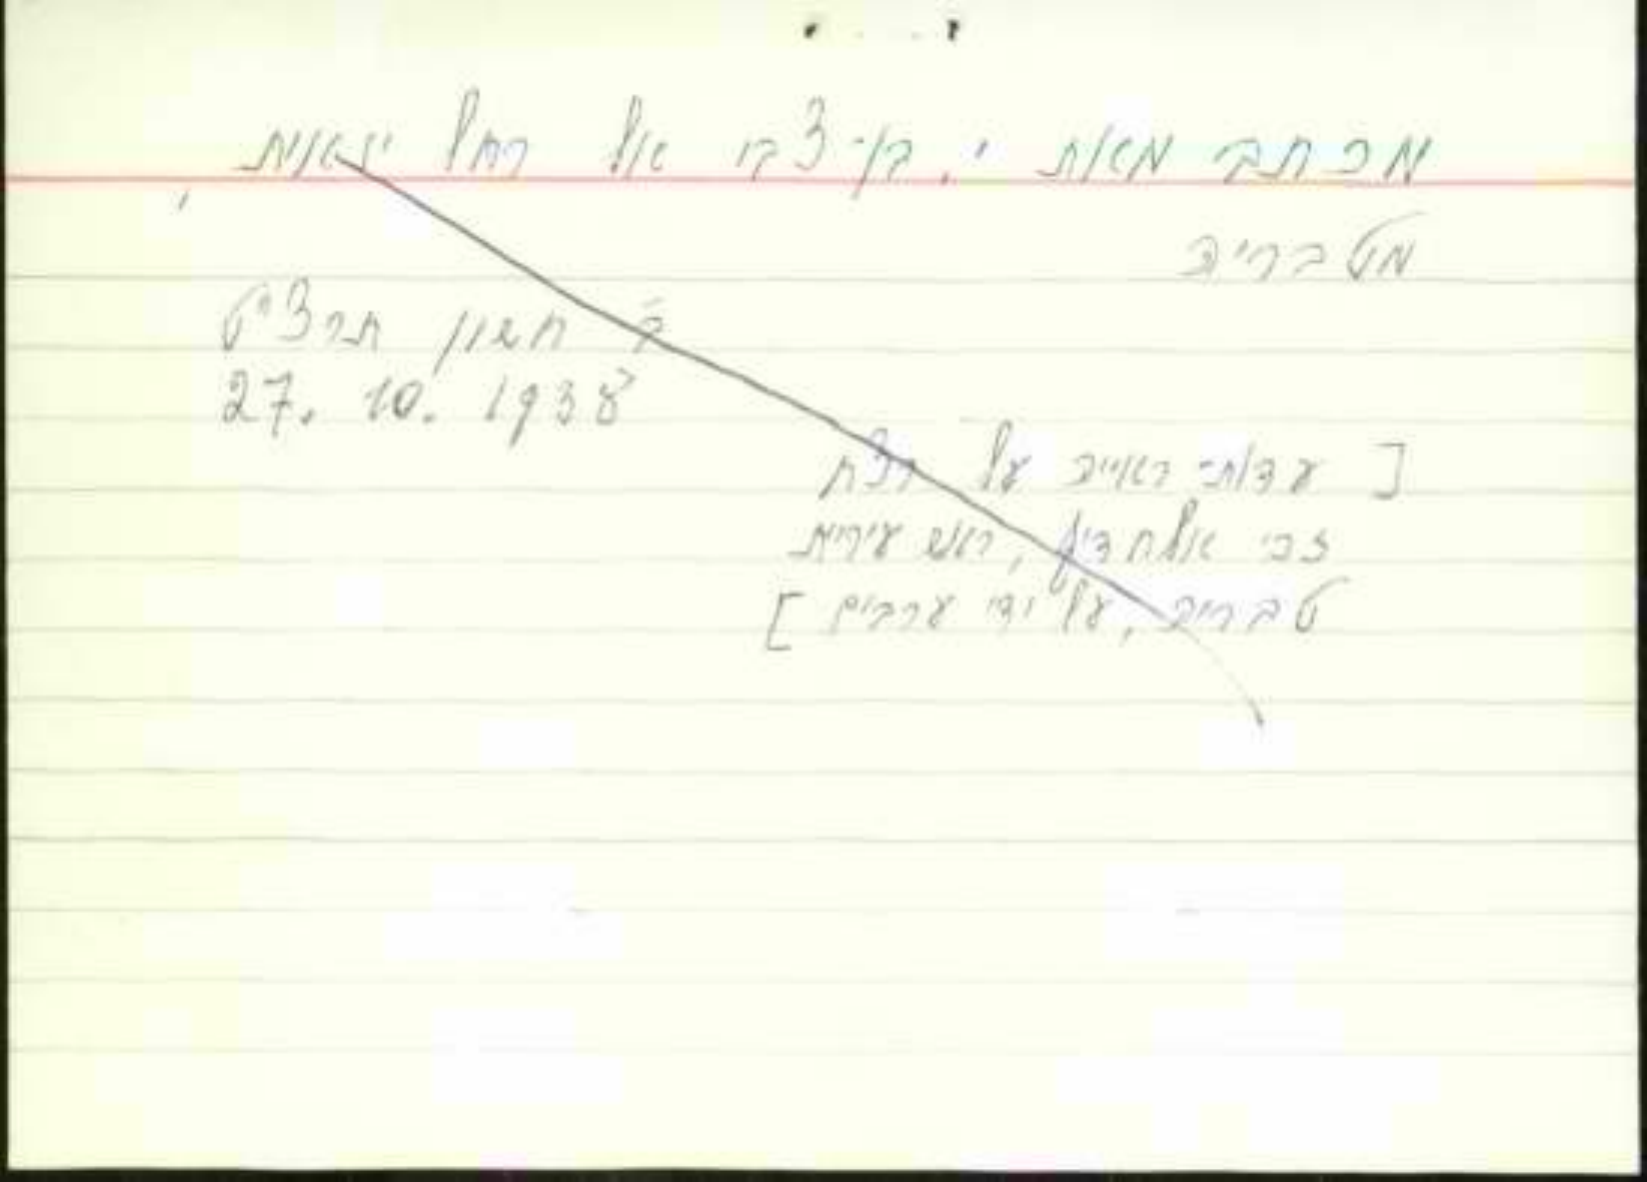 מכתב מאת י. בן-צבי אל רחל ינאית,
מטבריה
ב' חשון תרצ"ט
27. 10. 1938
[ עדות-ראייה על רצח
זכי אלחדיף, ראש עיריית
טבריה, על ידי ערבים ]